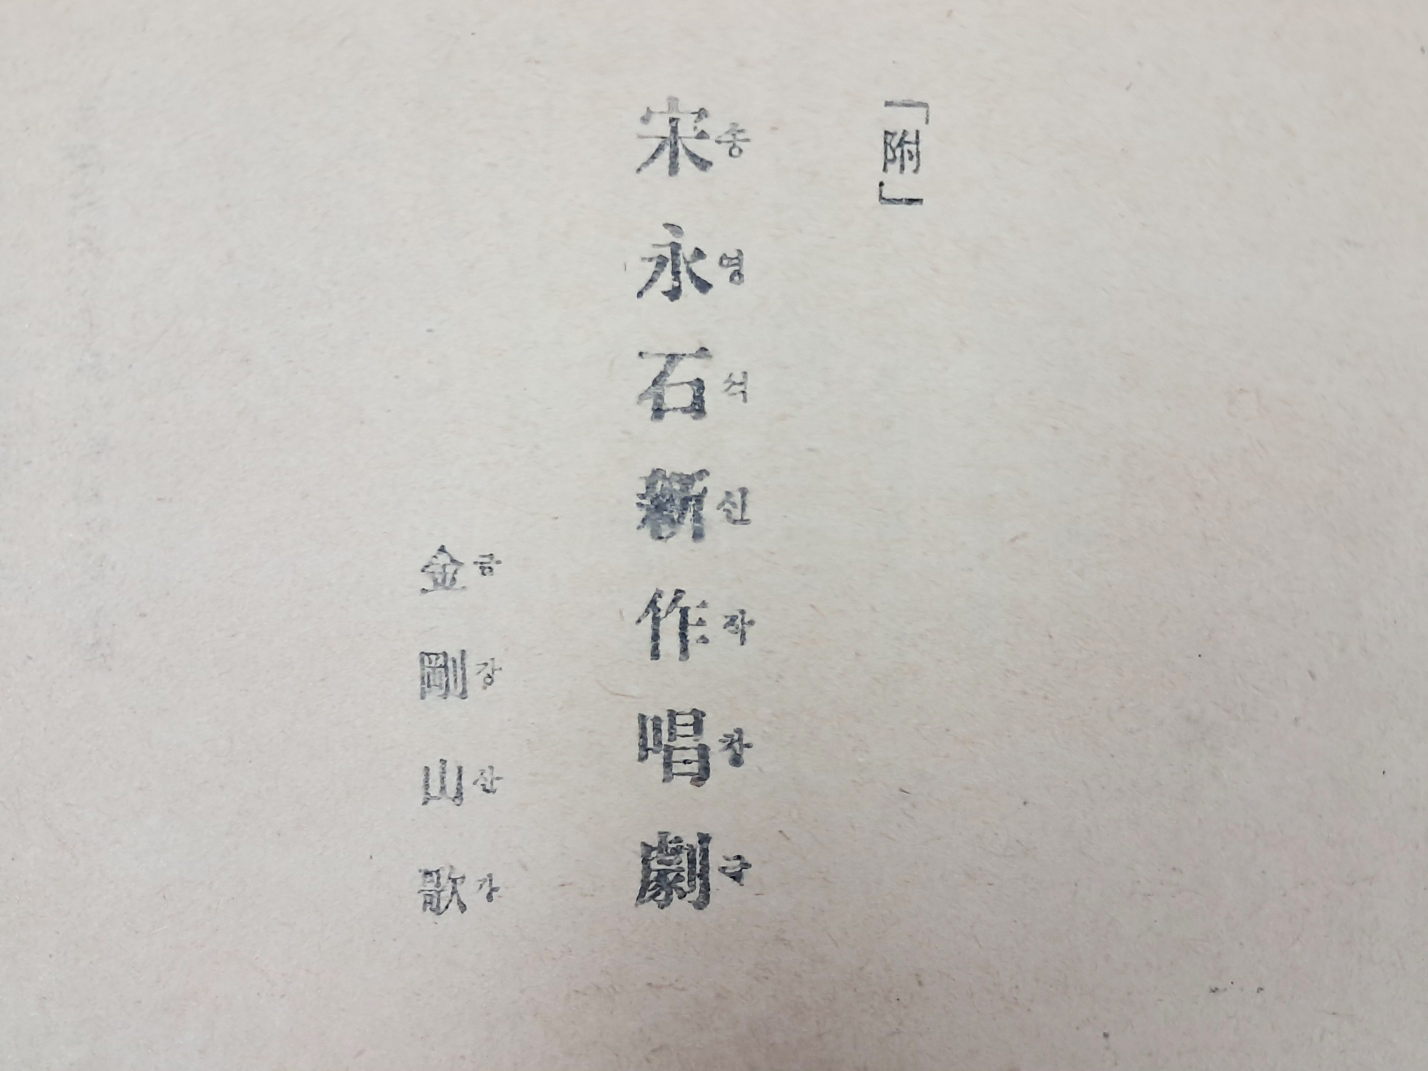 「附」
宋永石新作唱劇
송영석신작창극
金剛山歌
금강산가